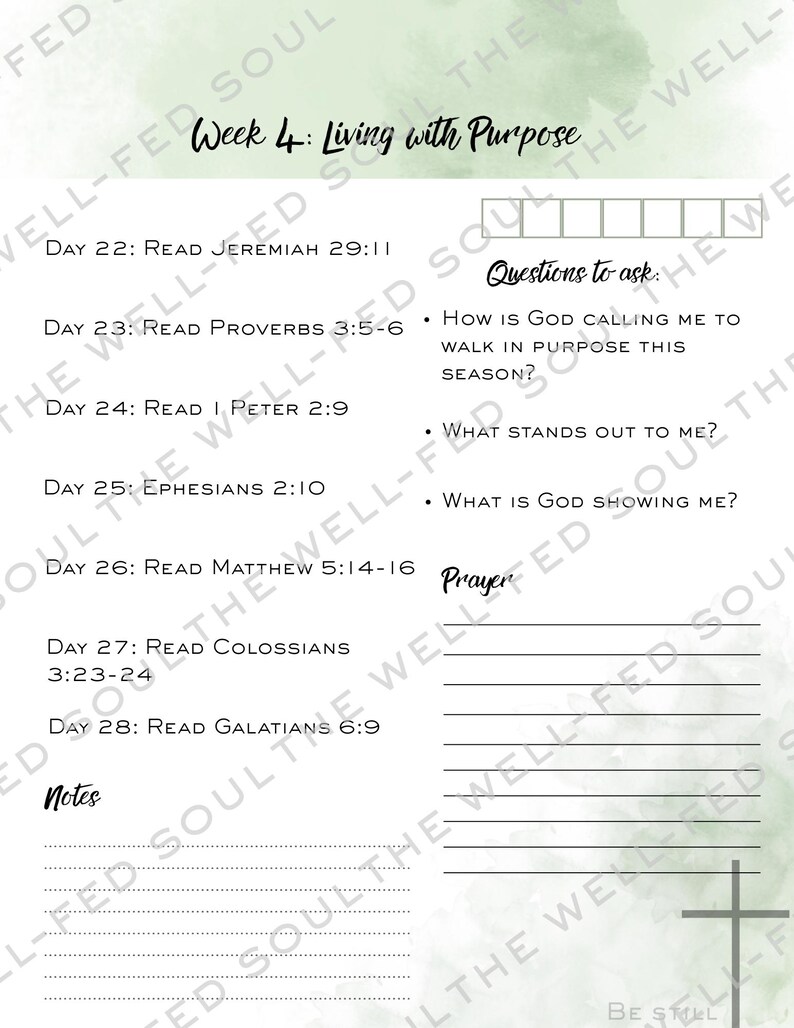 Week 4: Living with Purpose
Day 22: Read Jeremiah 29:11
Day 23: Read Proverbs 3:5-6
Day 24: Read 1 Peter 2:9
Day 25: Ephesians 2:10
Day 26: Read Matthew 5:14-16
Day 27: Read Colossians
3:23-24
Day 28: Read Galatians 6:9
Notes
Questions to ask:
• How is God calling me to
walk in purpose this
season?
• What stands out to me?
• What is God showing me?
Prayer
Be still
THE WELL-FED SOUL THE WELL-FED SOUL THE WELL-FED SOUL